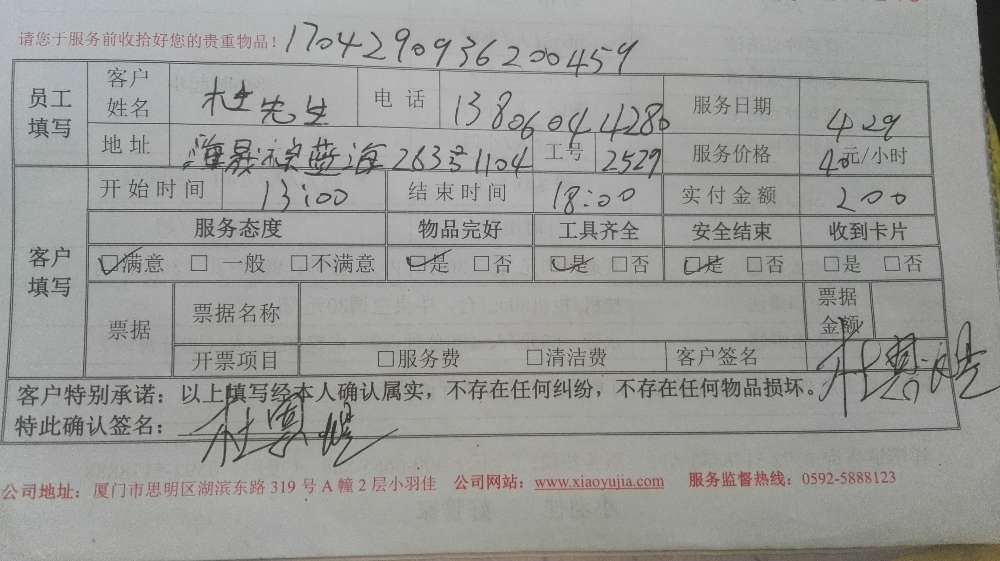 请您于服务前收拾好您的贵重物品！1704290936200459
员工填写 客户姓名 杜先生 电话 13806044280 服务日期 4.29
地址 海晟棕蓝海263号1104 工号 2529 服务价格 40元/小时
开始时间 13:00 结束时间 18:00 实付金额 200
客户填写 服务态度 物品完好 工具齐全 安全结束 收到卡片
☑满意 □一般 □不满意 ☑是 □否 ☑是 □否 ☑是 □否 □是 □否
票据 票据名称 票据金额
开票项目 □服务费 □清洁费 客户签名 杜
客户特别承诺：以上填写经本人确认属实，不存在任何纠纷，不存在任何物品损坏。
特此确认签名： 杜
公司地址：厦门市思明区湖滨东路 319 号 A 幢 2 层小羽佳 公司网站：www.xiaoyujia.com 服务监督热线：0592-5888123